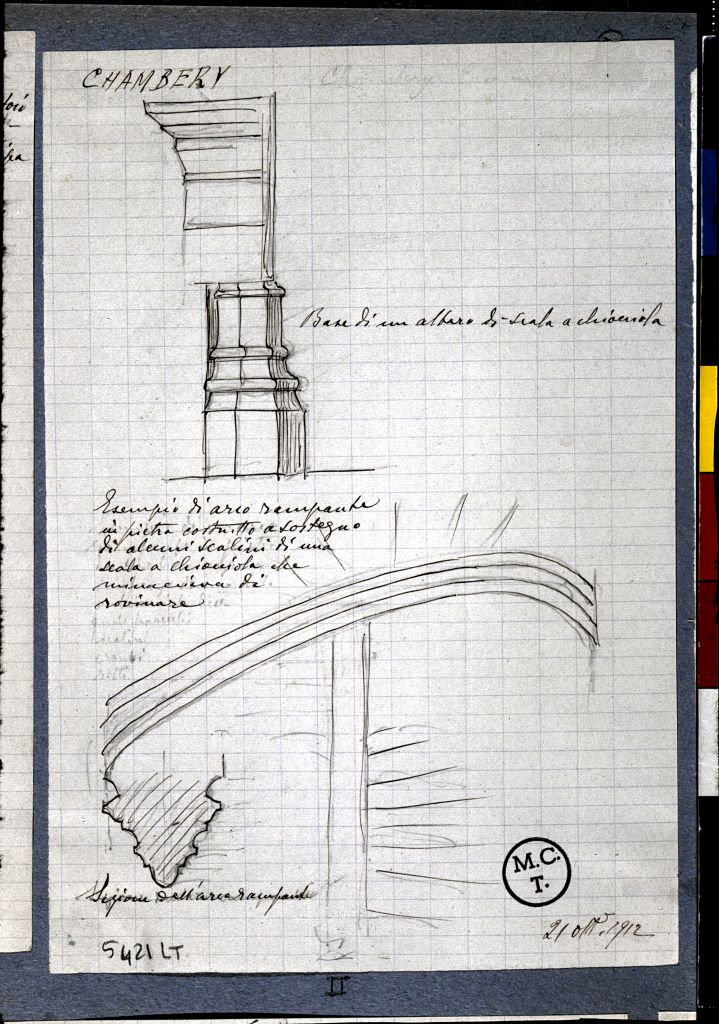 CHAMBERY
Base di un albero di scala a chiocciola
Esempio di arco rampante
in pietra costruito a sostegno
di alcuni scalini di una
scala a chiocciola che
minacciava di
rovinare
Sezione dell'arco rampante
M.C.
T.
21 ott. 1912
5421 LT
II